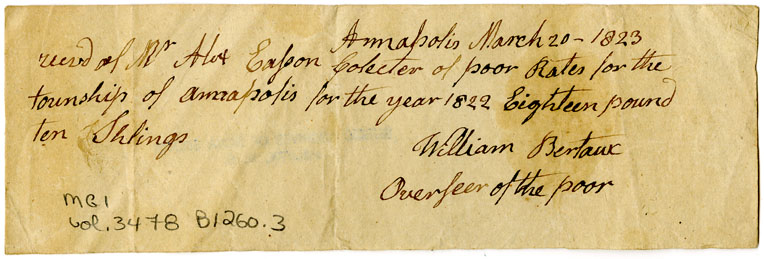 Annapolis March 20 - 1823
recvd of Mr Alex Easson Colecter of poor Rates for the
township of annapolis for the year 1822 Eighteen pound
ten Shlings
William Bertaux
Overseer of the poor
MG1
vol. 3478 B1260.3